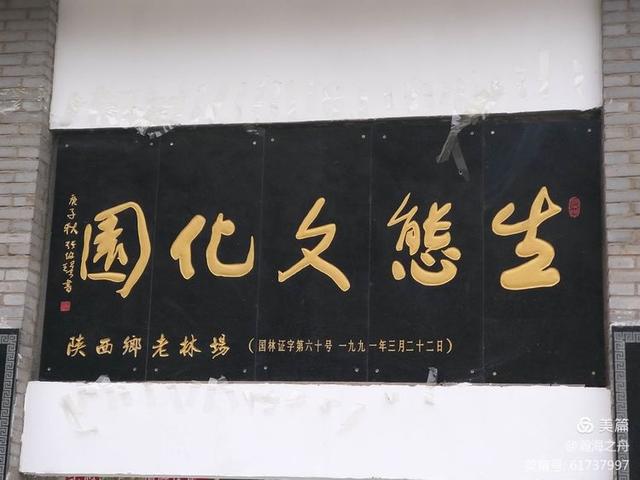 生態文化園
庚子秋
陕西鄉老林場（国林证字第六十号 一九九一年三月二十二日）
美篇
@瀚海之舟
美篇号: 61737997